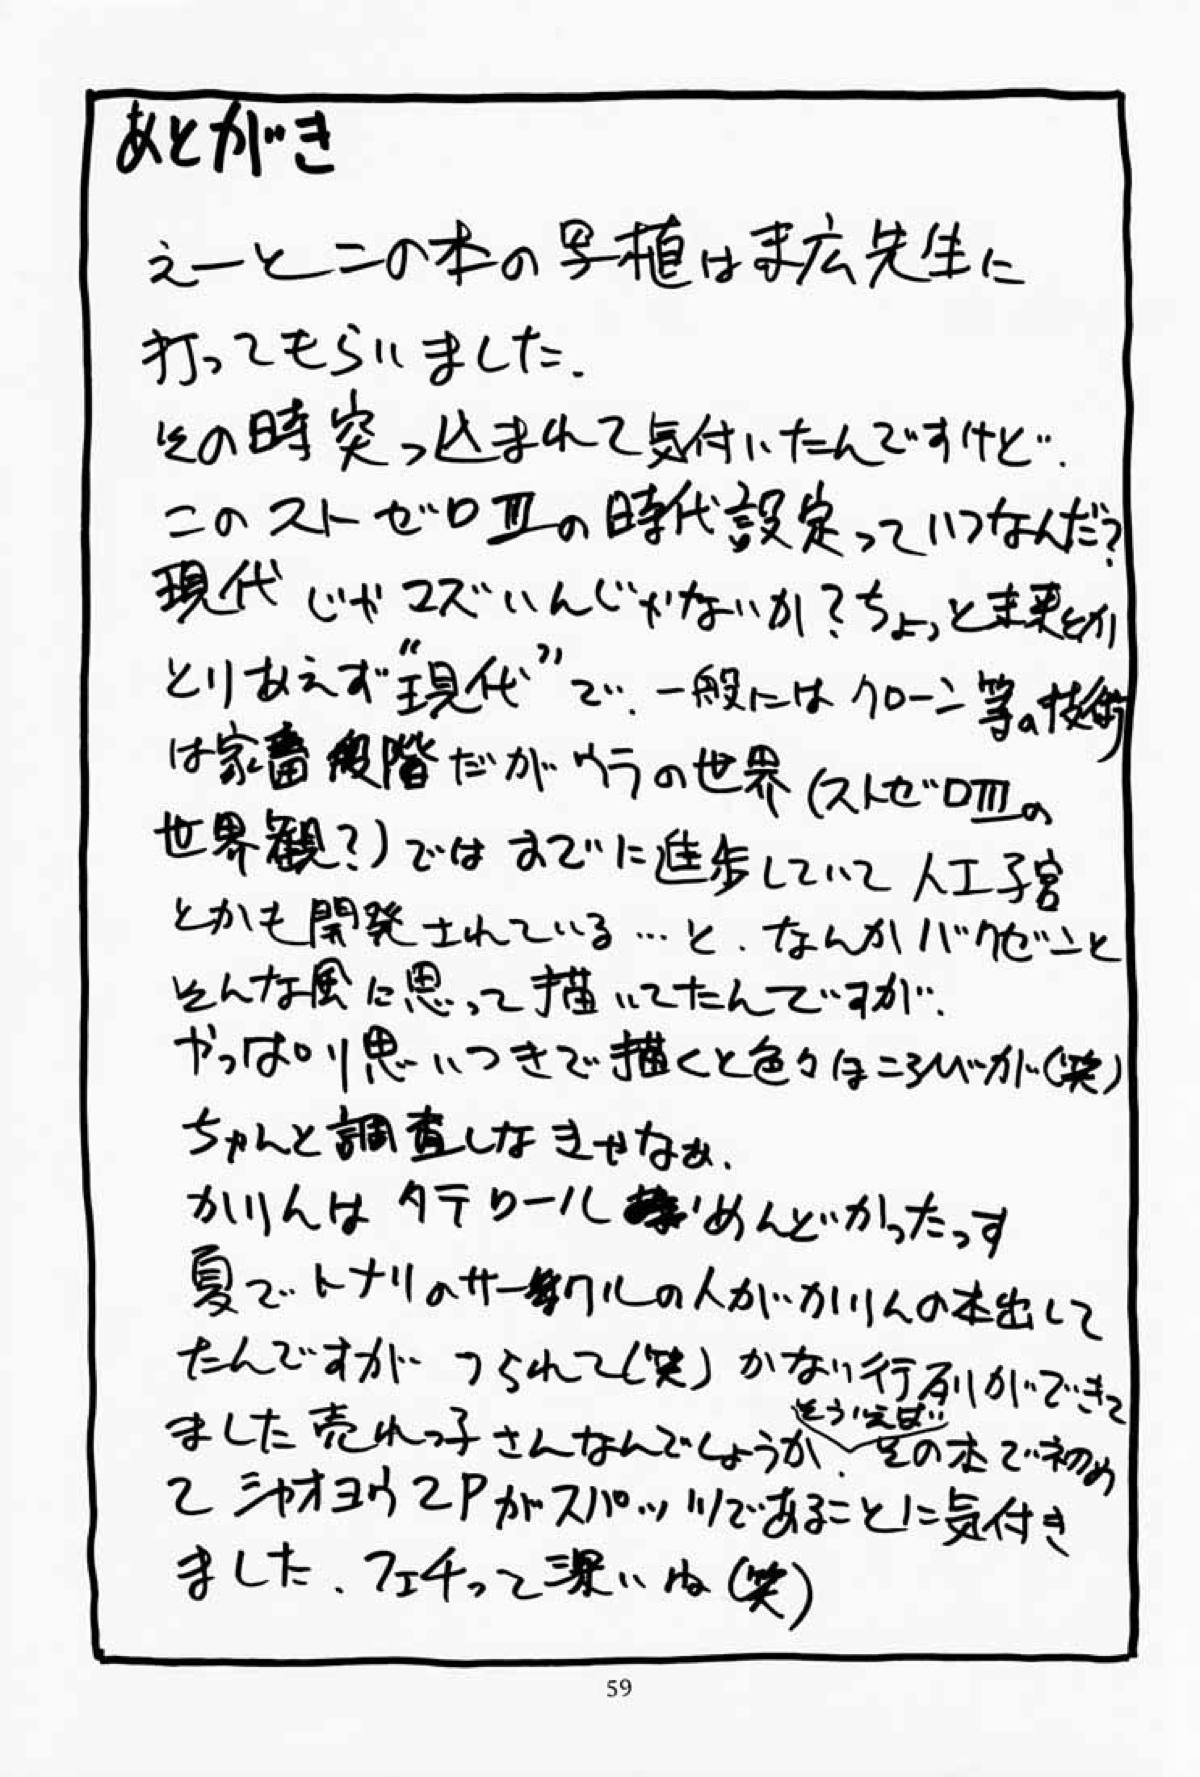 あとがき
えーとこの本の写植はま広先生に
打ってもらいました.
その時突っ込まれて気付いたんですけど.
このストゼロⅢの時代設定っていつなんだ?
現代じゃマズいんじゃないか?ちょっと未来とか
とりあえず“現代”で.一般にはクローン等の技術
は家畜段階だがウラの世界(ストゼロⅢの
世界観?)ではすでに進歩していて人工子宮
とかも開発されている…と.なんかバクゼンと
そんな風に思って描いてたんですが.
やっぱり思いつきで描くと色々ほころびが(笑)
ちゃんと調査しなきゃなぁ.
かりんはタテロールめんどかったっす
夏でトナリのサークルの人がかりんの本出して
たんですが つられて(笑)かなり行列ができて
ました売れっ子さんなんでしょうか.そういえばその本で初め
てシャオヨウ2Pがスパッツであることに気付き
ました.フェチって深いね(笑)
59